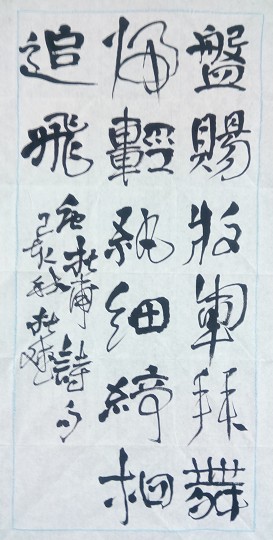 盤賜将軍拜舞
歸輕紈細綺相
追飛
唐杜甫詩句
己亥秋